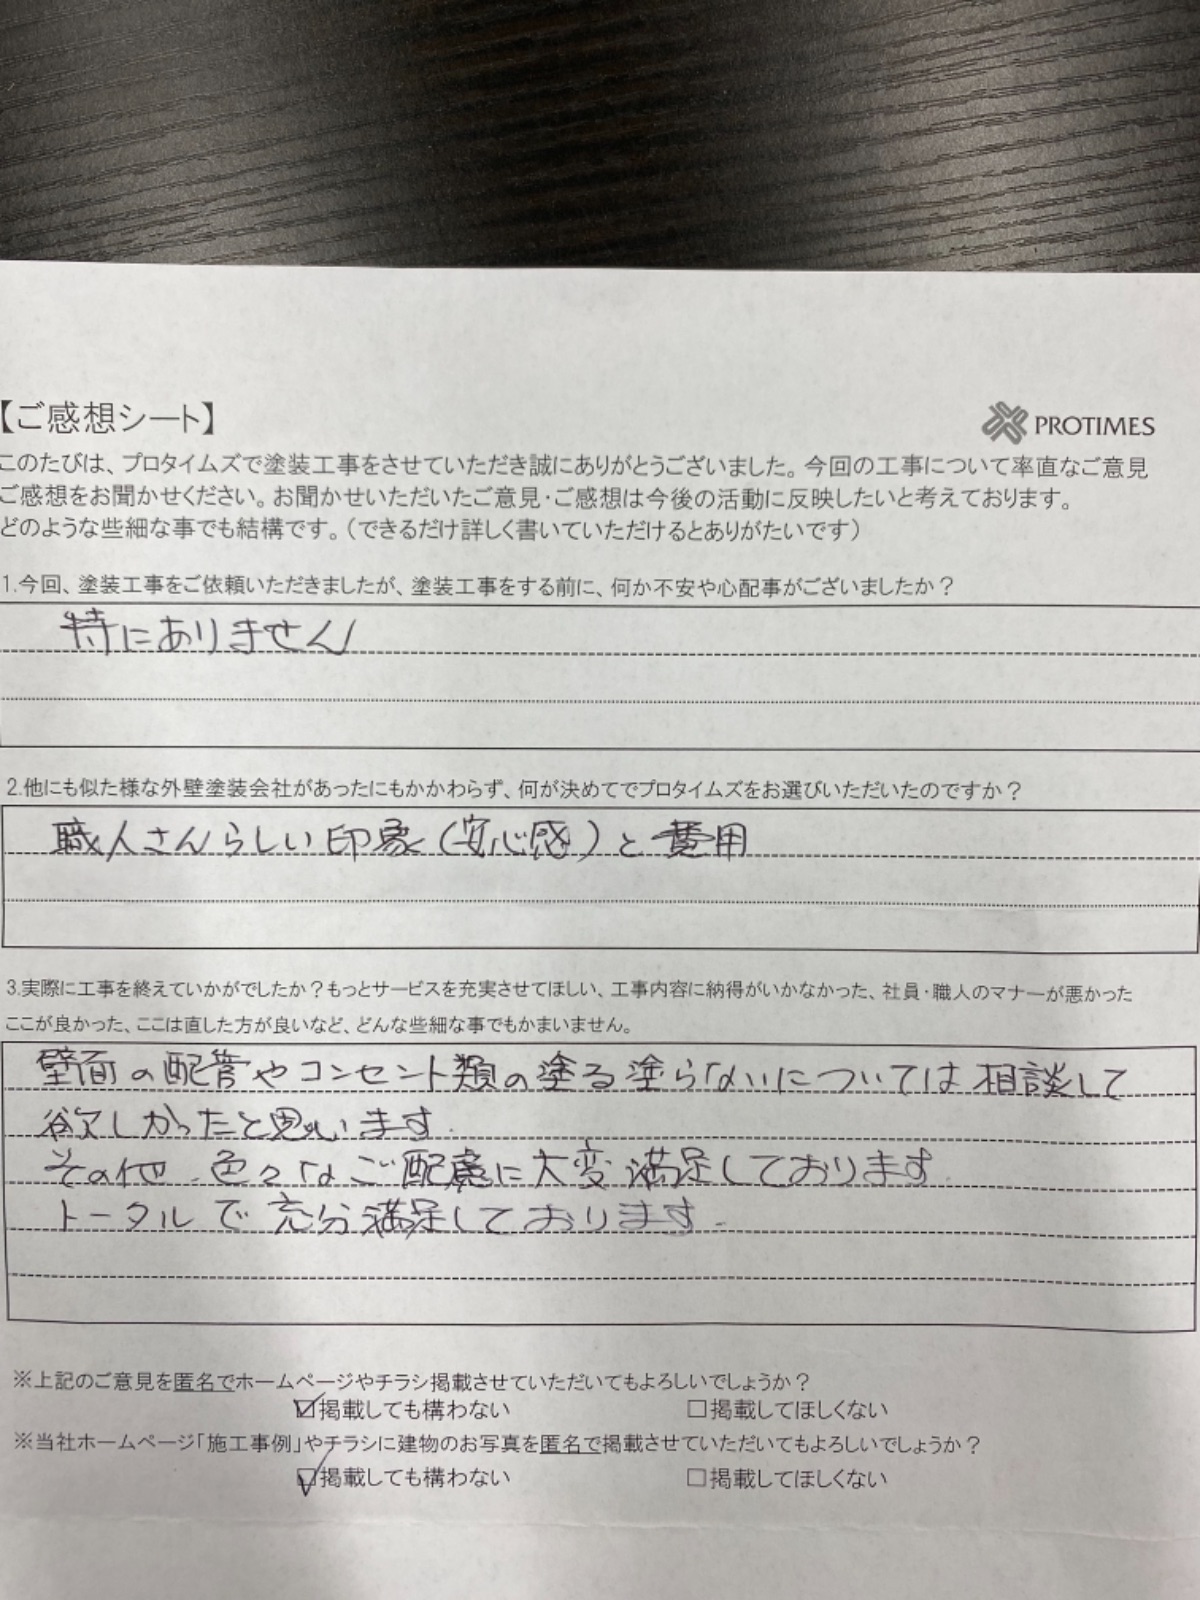 【ご感想シート】
PROTIMES
このたびは、プロタイムズで塗装工事をさせていただき誠にありがとうございました。今回の工事について率直なご意見
ご感想をお聞かせください。お聞かせいただいたご意見・ご感想は今後の活動に反映したいと考えております。
どのような些細な事でも結構です。（できるだけ詳しく書いていただけるとありがたいです）
1.今回、塗装工事をご依頼いただきましたが、塗装工事をする前に、何か不安や心配事がございましたか？
特にありません
2.他にも似た様な外壁塗装会社があったにもかかわらず、何が決めてでプロタイムズをお選びいただいたのですか？
職人さんらしい印象（安心感）と費用
3.実際に工事を終えていかがでしたか？もっとサービスを充実させてほしい、工事内容に納得がいかなかった、社員・職人のマナーが悪かった
ここが良かった、ここは直した方が良いなど、どんな些細な事でもかまいません。
壁面の配管やコンセント類の塗る塗らないについては相談して
欲しかったと思います.
その他、色々なご配慮に大変満足しております.
トータルで充分満足しております.
※上記のご意見を匿名でホームページやチラシ掲載させていただいてもよろしいでしょうか？
☑掲載しても構わない □掲載してほしくない
※当社ホームページ「施工事例」やチラシに建物のお写真を匿名で掲載させていただいてもよろしいでしょうか？
☑掲載しても構わない □掲載してほしくない